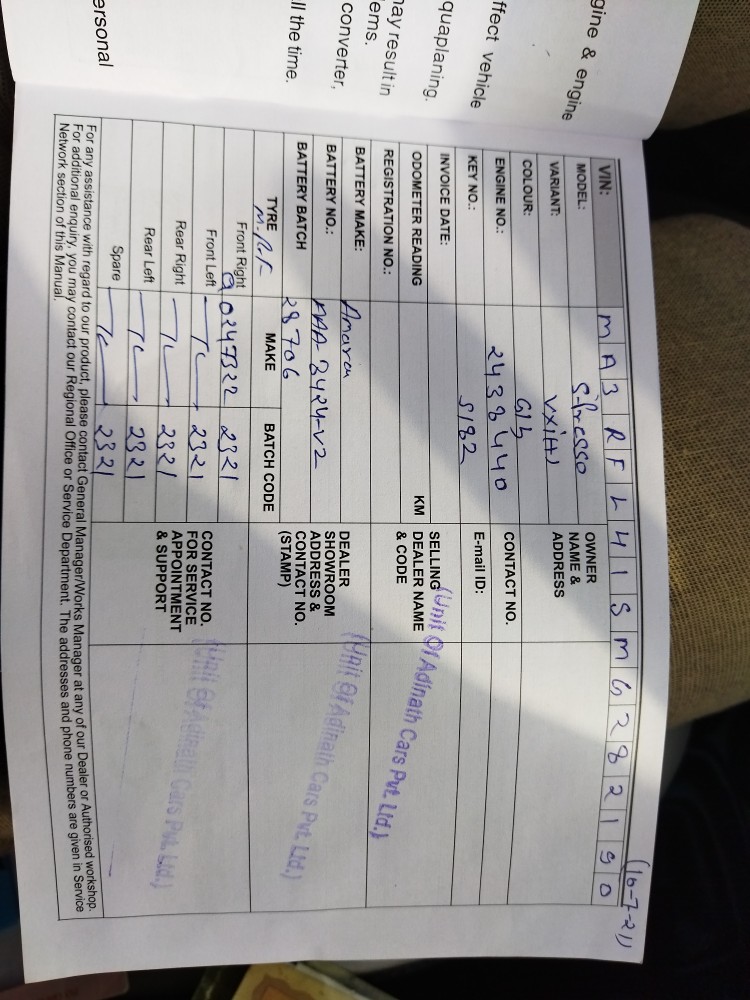 gine & engine
ffect vehicle
quaplaning.
nay result in
ems.
converter,
ll the time.
ersonal
(16-7-21)
VIN: MA3RFL41SMG282190
MODEL: S-presso
VARIANT: VXi(+)
COLOUR:
ENGINE NO.: 2438440
KEY NO.: 5182
INVOICE DATE:
ODOMETER READING KM
REGISTRATION NO.:
BATTERY MAKE: Amaron
BATTERY NO.: AAA-2424-V2
BATTERY BATCH 28706
TYRE MAKE BATCH CODE
M.R.F
Front Right 90247322 2321
Front Left 2321
Rear Right 2321
Rear Left 2321
Spare 2321
OWNER
NAME &
ADDRESS
CONTACT NO.
E-mail ID:
SELLING
DEALER NAME
& CODE
(Unit Of Adinath Cars Pvt. Ltd.)
DEALER
SHOWROOM
ADDRESS &
CONTACT NO.
(STAMP)
(Unit Of Adinath Cars Pvt. Ltd.)
CONTACT NO.
FOR SERVICE
APPOINTMENT
& SUPPORT
(Unit Of Adinath Cars Pvt. Ltd.)
For any assistance with regard to our product, please contact General Manager/Works Manager at any of our Dealer or Authorised workshop.
For additional enquiry, you may contact our Regional Office or Service Department. The addresses and phone numbers are given in Service
Network section of this Manual.